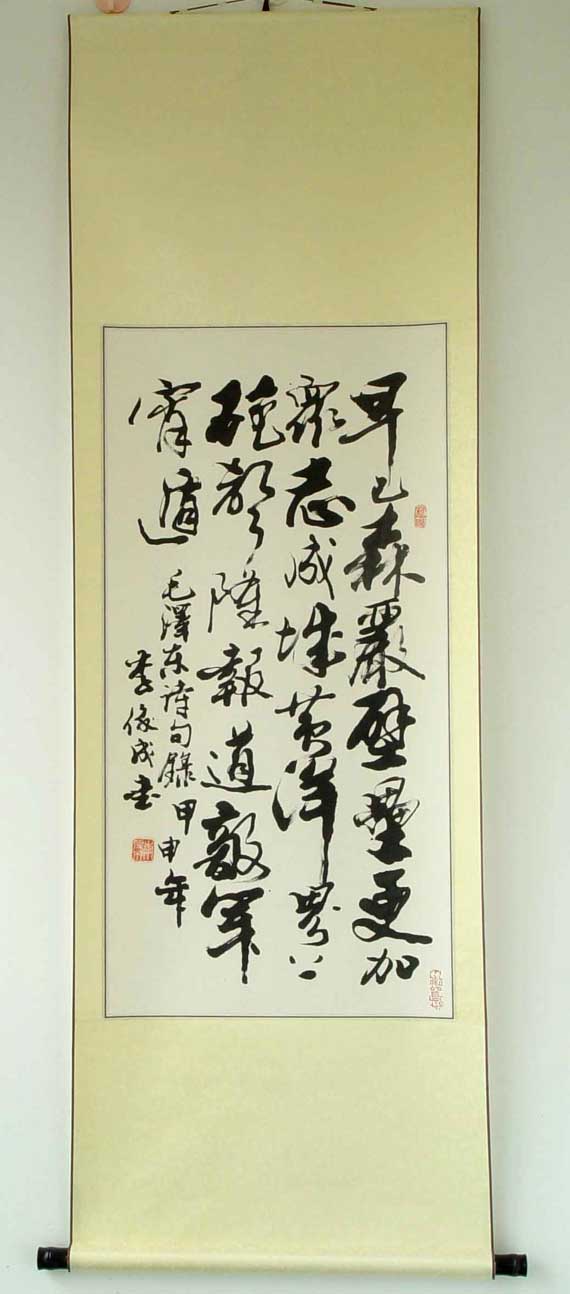 早已森嚴壁壘更加
衆志成城黄洋界上
砲聲隆報道敵軍
宵遁
毛澤东诗句錄甲申年
李俊成书